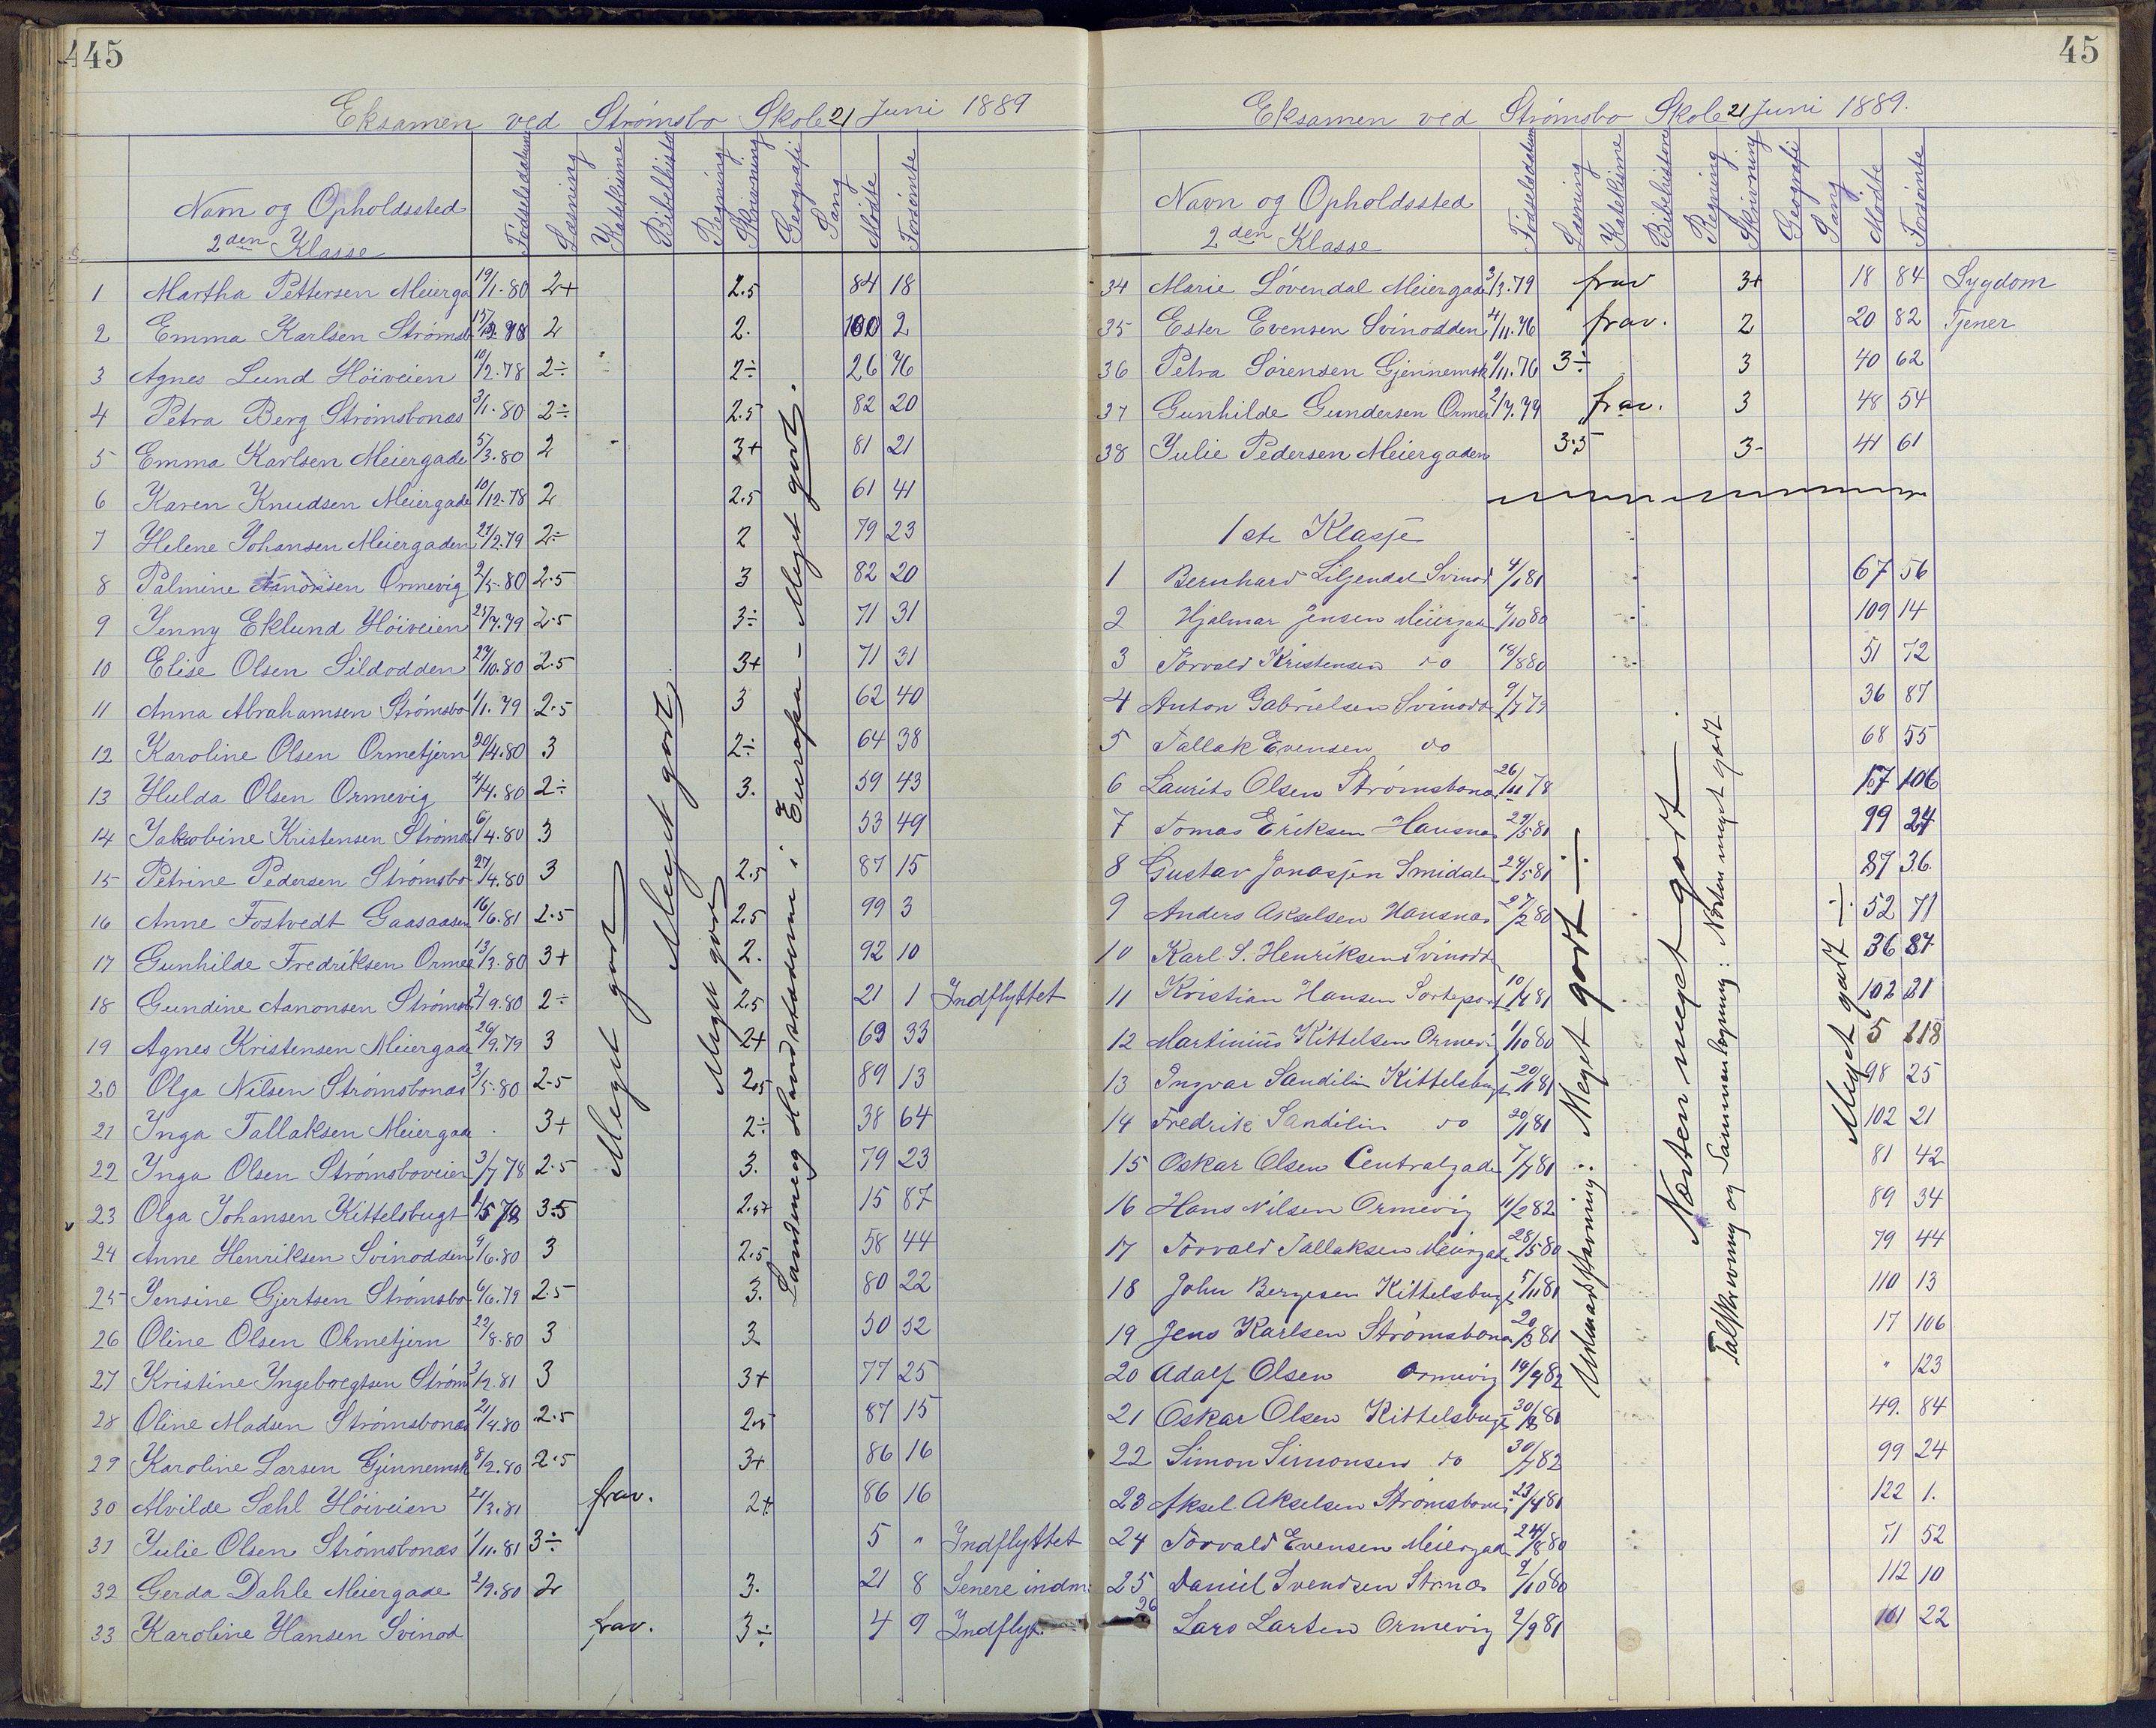 445
Eksamen ved Strømsbo Skole 21 Juni 1889
Navn og Opholdssted
2den Klasse
Fødselsdatum Læsning Katekisme Bibelhistorie Regning Skrivning Geografi Sang Mødte Forsømte
1 Martha Pettersen Meierga 19/1.80 2+ 2.5 84 18
2 Emma Karlsen Strømsb 2 2. 100 2
3 Agnes Lund Höiveien 10/2.78 2÷ 2÷ 26 76
4 Petra Berg Strømsbonæs 3/1.80 2÷ 2.5 82 20
5 Emma Karlsen Meiergade 5/3.80 2 3+ 81 21
6 Karen Knudsen Meiergade 10/12.78 2 2.5 61 41
7 Helene Johansen Meiergaden 21/2.79 2÷ 2 79 23
8 Palmine Aanonsen Ormevig 9/5.80 2.5 3 82 20
9 Jenny Eklund Höiveien 25/7.79 2.5 3÷ 71 31
10 Elise Olsen Sildodden 29/10.80 2.5 3+ 71 31
11 Anna Abrahamsen Strømsbo 1/1.79 2.5 3 62 40
12 Karoline Olsen Ormetjern 30/4.80 3 2÷ 64 38
13 Hulda Olsen Ormevig 4/4.80 2÷ 3. 59 43
14 Jakobine Kristensen Strøms 6/4.80 3 53 49
15 Petrine Pedersen Strømsbo 27/4.80 3 2.5 87 15
16 Anne Fostvedt Gaasaasen 16/6.81 2.5 2.5 99 3
17 Gunhilde Fredriksen Orme 13/3.80 3+ 2. 92 10
18 Gundine Aanonsen Strømsb 2/9.80 2÷ 2.5 21 1 Indflyttet
19 Agnes Kristensen Meiergade 26/9.79 3 2+ 69 33
20 Olga Nilsen Strømsbonæs 3/5.80 2.5 2.5 89 13
21 Inga Tallaksen Meiergade 3+ 2÷ 38 64
22 Inga Olsen Strømsboveien 3/7 78 2.5 3. 79 23
23 Olga Johansen Kittelsbugt 3.5 2.5+ 15 87
24 Anne Henriksen Svinodden 9/6.80 3 2.5 58 44
25 Jensine Gjertsen Strømsbo 6/6.79 2.5 3. 80 22
26 Oline Olsen Ormetjern 22/8.80 3 3 50 52
27 Kristine Ingebregtsen Strøm 3/2.81 3 3+ 77 25
28 Oline Madsen Strømsbonæs 21/4.80 2.5 2.5 87 15
29 Karoline Larsen Gjennemsk 8/2.80 2.5 3+ 86 16
30 Alvilde Sæhl Höiveien 21/3.81 frav. 2+ 86 16
31 Julie Olsen Strømsbonæs 1/11.81 3÷ 5 " Indflyttet
32 Gerda Dahle Meiergade 2/9.80 2 3. 21 8 Senere indm:
33 Karoline Hansen Svinod frav. 3÷ 4 9 Indflyt.
Meget godt
Meget godt
Meget godt
Landene og Hovedstæderne i Europa – Meget godt.
45
Eksamen ved Strømsbo Skole 21 Juni 1889.
Navn og Opholdssted
2den Klasse
Fødselsdatum Læsning Katekisme Bibelhistorie Regning Skrivning Geografi Sang Mødte Forsømte
34 Marie Løvendal Meiergade 3/3.79 frav 3+ 18 84 Sygdom
35 Ester Evensen Svinodden 4/11.76 frav. 2 20 82 Tjener
36 Petra Sørensen Gjennemsk 9/11.76 3÷ 3 40 62
37 Gunhilde Gundersen Ormev 2/7.79 frav. 3 48 54
38 Julie Pedersen Meiergaden 3.5 3- 41 61
1ste Klasse
1 Bernhard Liljendal Svinod 4/1 81 67 56
2 Hjalmar Jensen Meiergade 4/10 80 109 14
3 Torvald Kristensen do 18/8 80 51 72
4 Anton Gabrielsen Svinodd 9/7 79 36 87
5 Tallak Evensen do 68 55
6 Laurits Olsen Strømsbonæs 26/11 78 17 106
7 Tomas Eriksen Hausnæs 29/5 81 99 24
8 Gustav Jonassen Smidalen 24/5 81 87 36
9 Anders Akselsen Hausnæs 27/2 80 52 71
10 Karl S. Henriksen Svinodd 36 87
11 Kristian Hansen 10/4 81 102 21
12 Martinius Kittelsen Ormevig 1/10 80 5 118
13 Ingvar Sandilin Kittelsbugt 20/1 81 98 25
14 Fredrik Sandilin do 20/1 81 102 21
15 Oskar Olsen Centralgade 7/7 81 81 42
16 Hans Nilsen Ormevig 11/2 82 89 34
17 Torvald Tallaksen Meiergade 28/5 80 79 44
18 John Bergesen Kittelsbugt 5/11 81 110 13
19 Jens Karlsen Strømsbonæs 20/3 81 17 106
20 Adolf Olsen Ormevig 19/9 82 " 123
21 Oskar Olsen Kittelsbugt 30/8 81 49. 84
22 Simon Simonsen do 30/7 82 99 24
23 Aksel Akselsen Strømsbones 23/4 81 122 1.
24 Torvald Evensen Meiergade 24/8 80 71 52
25 Daniel Svendsen Strnæs 2/10 80 112 10
26 Lars Larsen Ormevig 2/9 81 101 22
Udenadstavning: Meget godt ÷
Næsten meget godt
Talskrivning og Sammenlægning: Næsten meget godt
Meget godt ÷